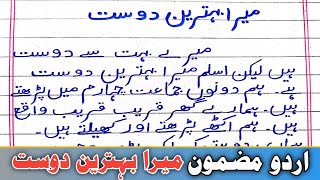 میرا بہترین دوست
میرے بہت سے دوست
ہیں لیکن اسلم میرا بہترین دوست
ہے۔ ہم دونوں جماعت چہارم میں پڑھتے
ہیں۔ ہمارے گھر قریب قریب واقع
ہیں۔ ہم اکٹھے پڑھتے اور کھیلتے ہیں۔
اردو مضمون میرا بہترین دوست